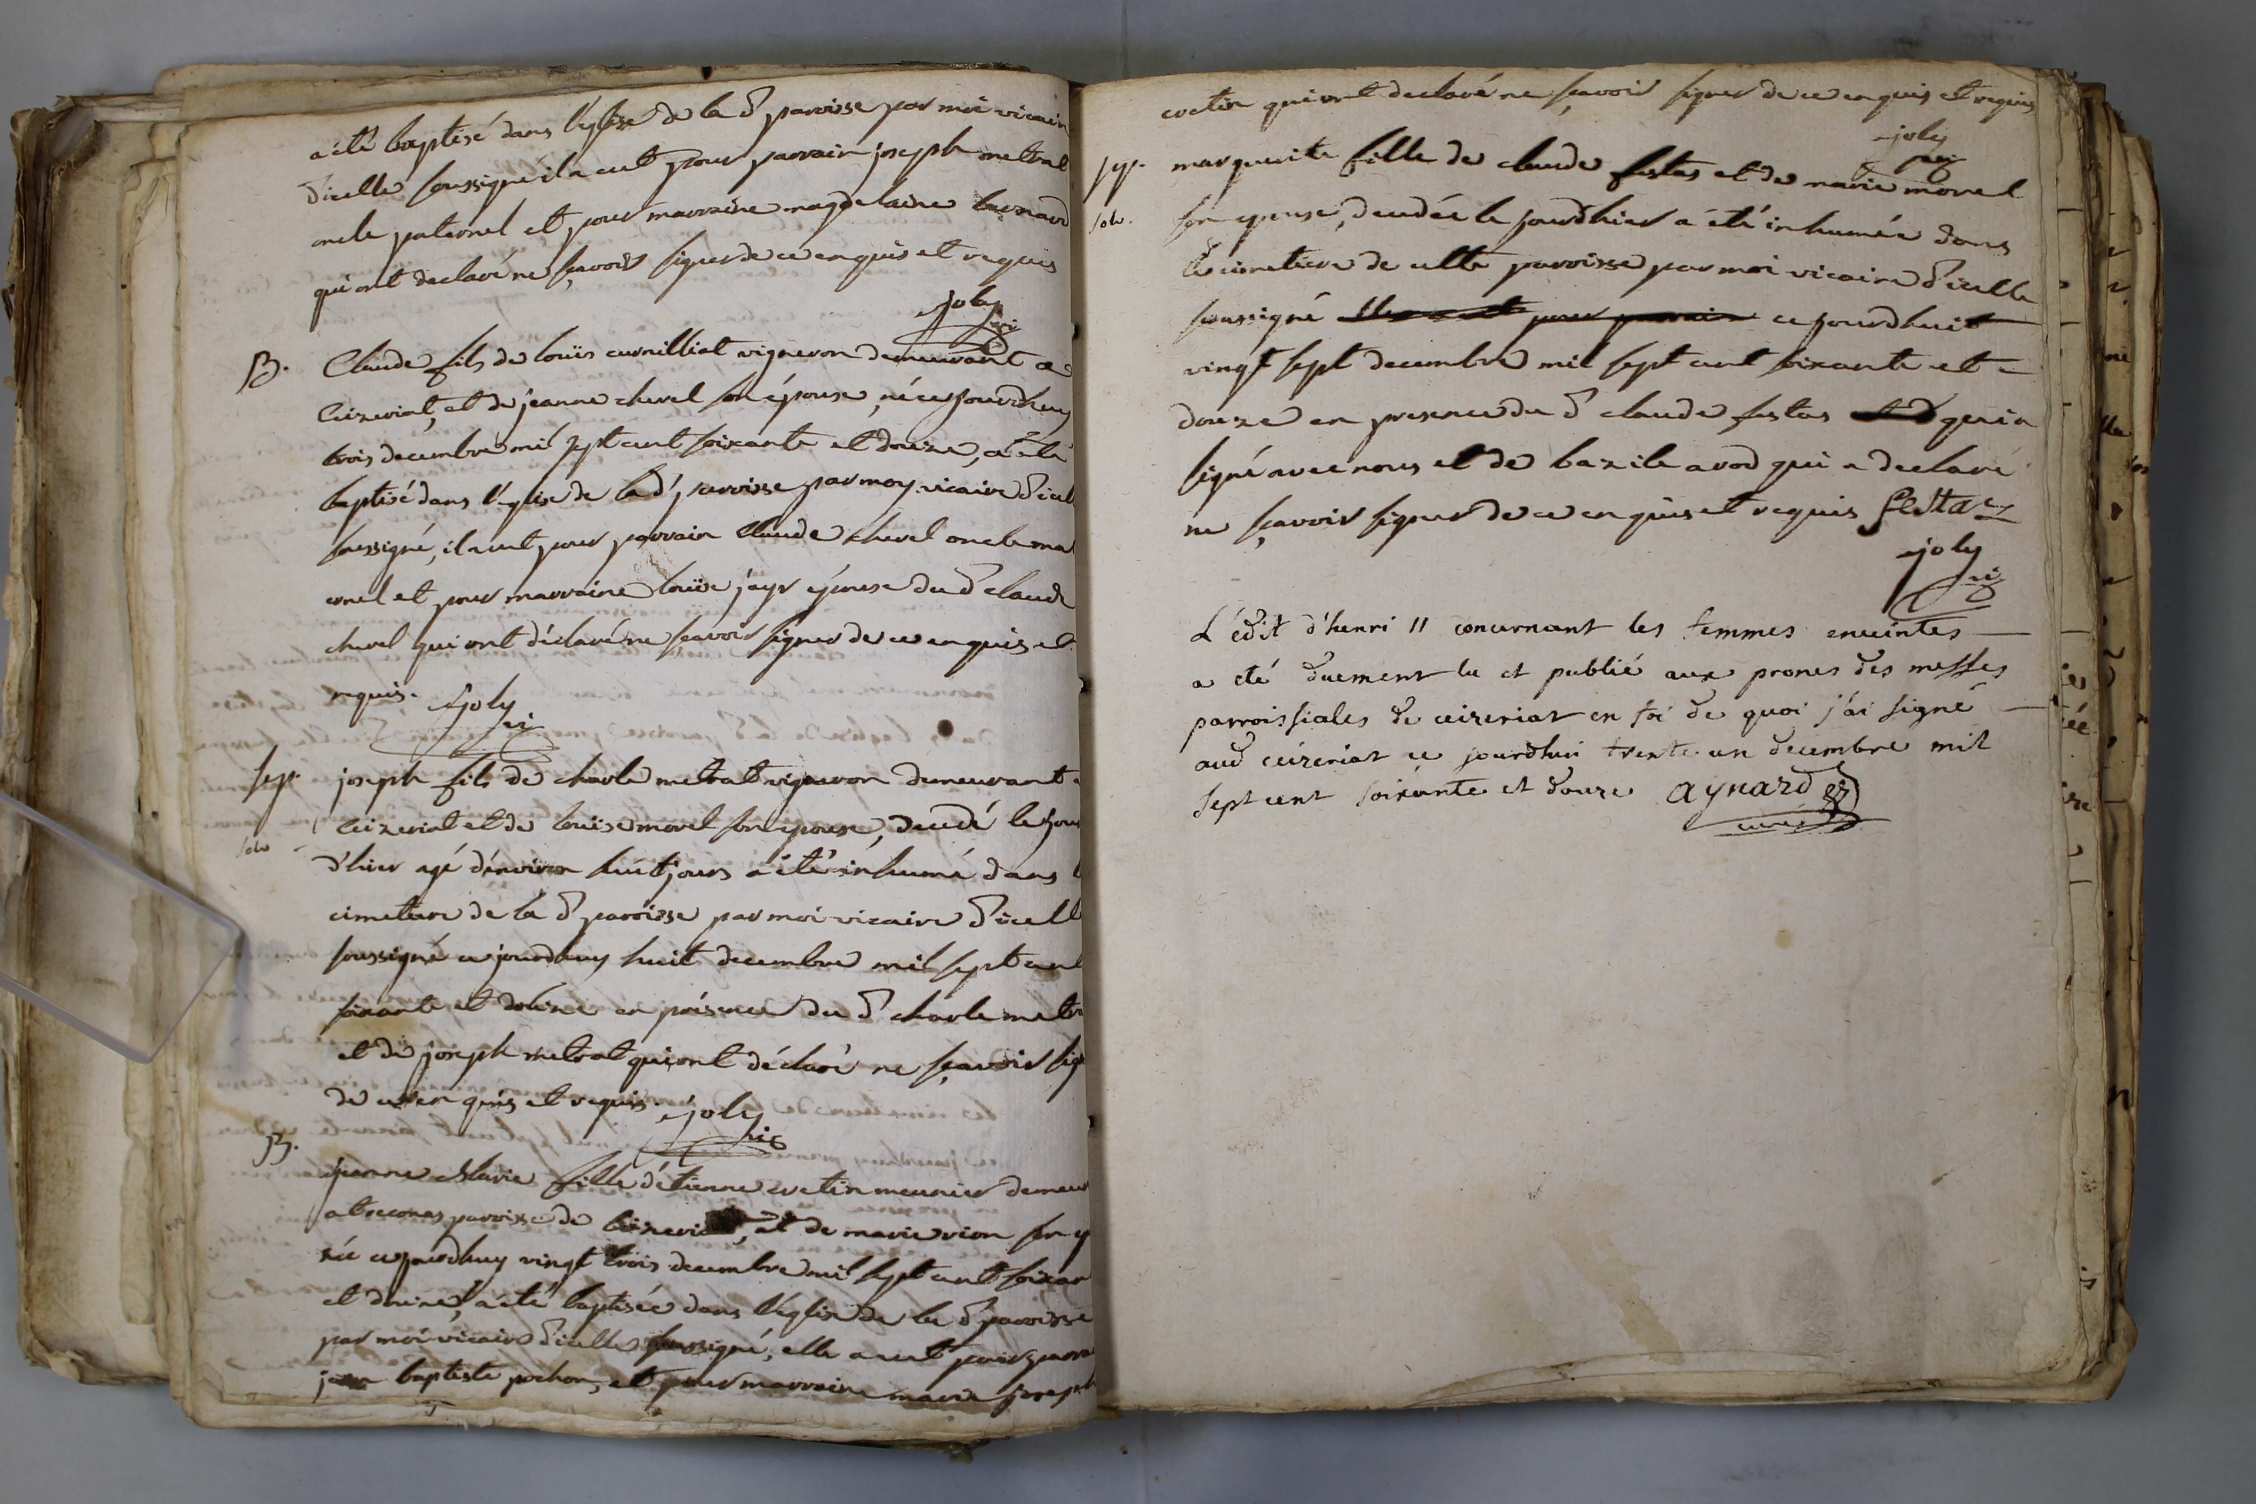 a été baptisé dans l'eglise de la d. paroisse par moi vicaire
d'icelle soussigné il a eut pour parrain joseph metrat
oncle paternel et pour marraine magdelaine bernard
qui ont declaré ne sçavoir signer de ce enquis et requis
joly vic
B. Claude fils de louis cuvnilliat vigneron demeurant a
Ceizeriat, et de jeanne chevel son épouse, né ce jourdhuy
trois decembre mil sept cent soixante et douze, a été
baptisé dans l'église de la d. paroisse par moy vicaire d'icel
soussigné, il a eut pour parrain Claude chevel oncle mat
ernel et pour marraine louise jayr épouse du d. claude
chevel qui ont déclaré ne sçavoir signer de ce enquis et
requis. joly vic
sep. joseph fils de charle metrat vigneron demeurant a
Ceizeriat et de louise morel son epouse, decedé le jour
solv.
d'hier agé d'environ huit jours a été inhumé dans l
cimetiere de la d. paroisse par moi vicaire d'icell
soussigné ce jourdhuy huit decembre mil sept cent
soixante et douze en présence du d. charle metra
et de joseph metrat qui ont déclaré ne sçavoir sign
de ce enquis et requis. joly vic
B.
jeanne Marie fille d'étienne cretin meunier demeur
a treconas paroisse de Ceizeriat, et de marie vion son ep
née ce jourdhuy vingt trois decembre mil sept cent soixan
et douze, a été baptisée dans l'église de la d. paroisse
par moi vicaire d'icelle soussigné, elle a eut pour parra
jean baptiste pochon, et pour marraine marie joseph
cretin qui ont declaré ne sçavoir signer de ce enquis et requis
joly vic
sep. marguerite fille de claude festas et de marie morel
solv. son epouse, decedée le jourdhier a été inhumée dans
le cimetiere de cette paroisse par moi vicaire d'icelle
soussigné elle a eut pour parrain ce jourdhuit
vingt sept decembre mil sept cent soixante et
douze en presence du d. claude festas qui a
signé avec nous et de bazile avod qui a declaré
ne sçavoir signer de ce enquis et requis festaz
joly vic
L'édit d'henri II concernant les femmes enceintes
a été duement lu et publié aux prones des messes
parroissiales de ceizeriat en foi de quoi j'ai signé
aud ceizeriat ce jourdhui trente un decembre mil
sept cent soixante et douze aynard
curé